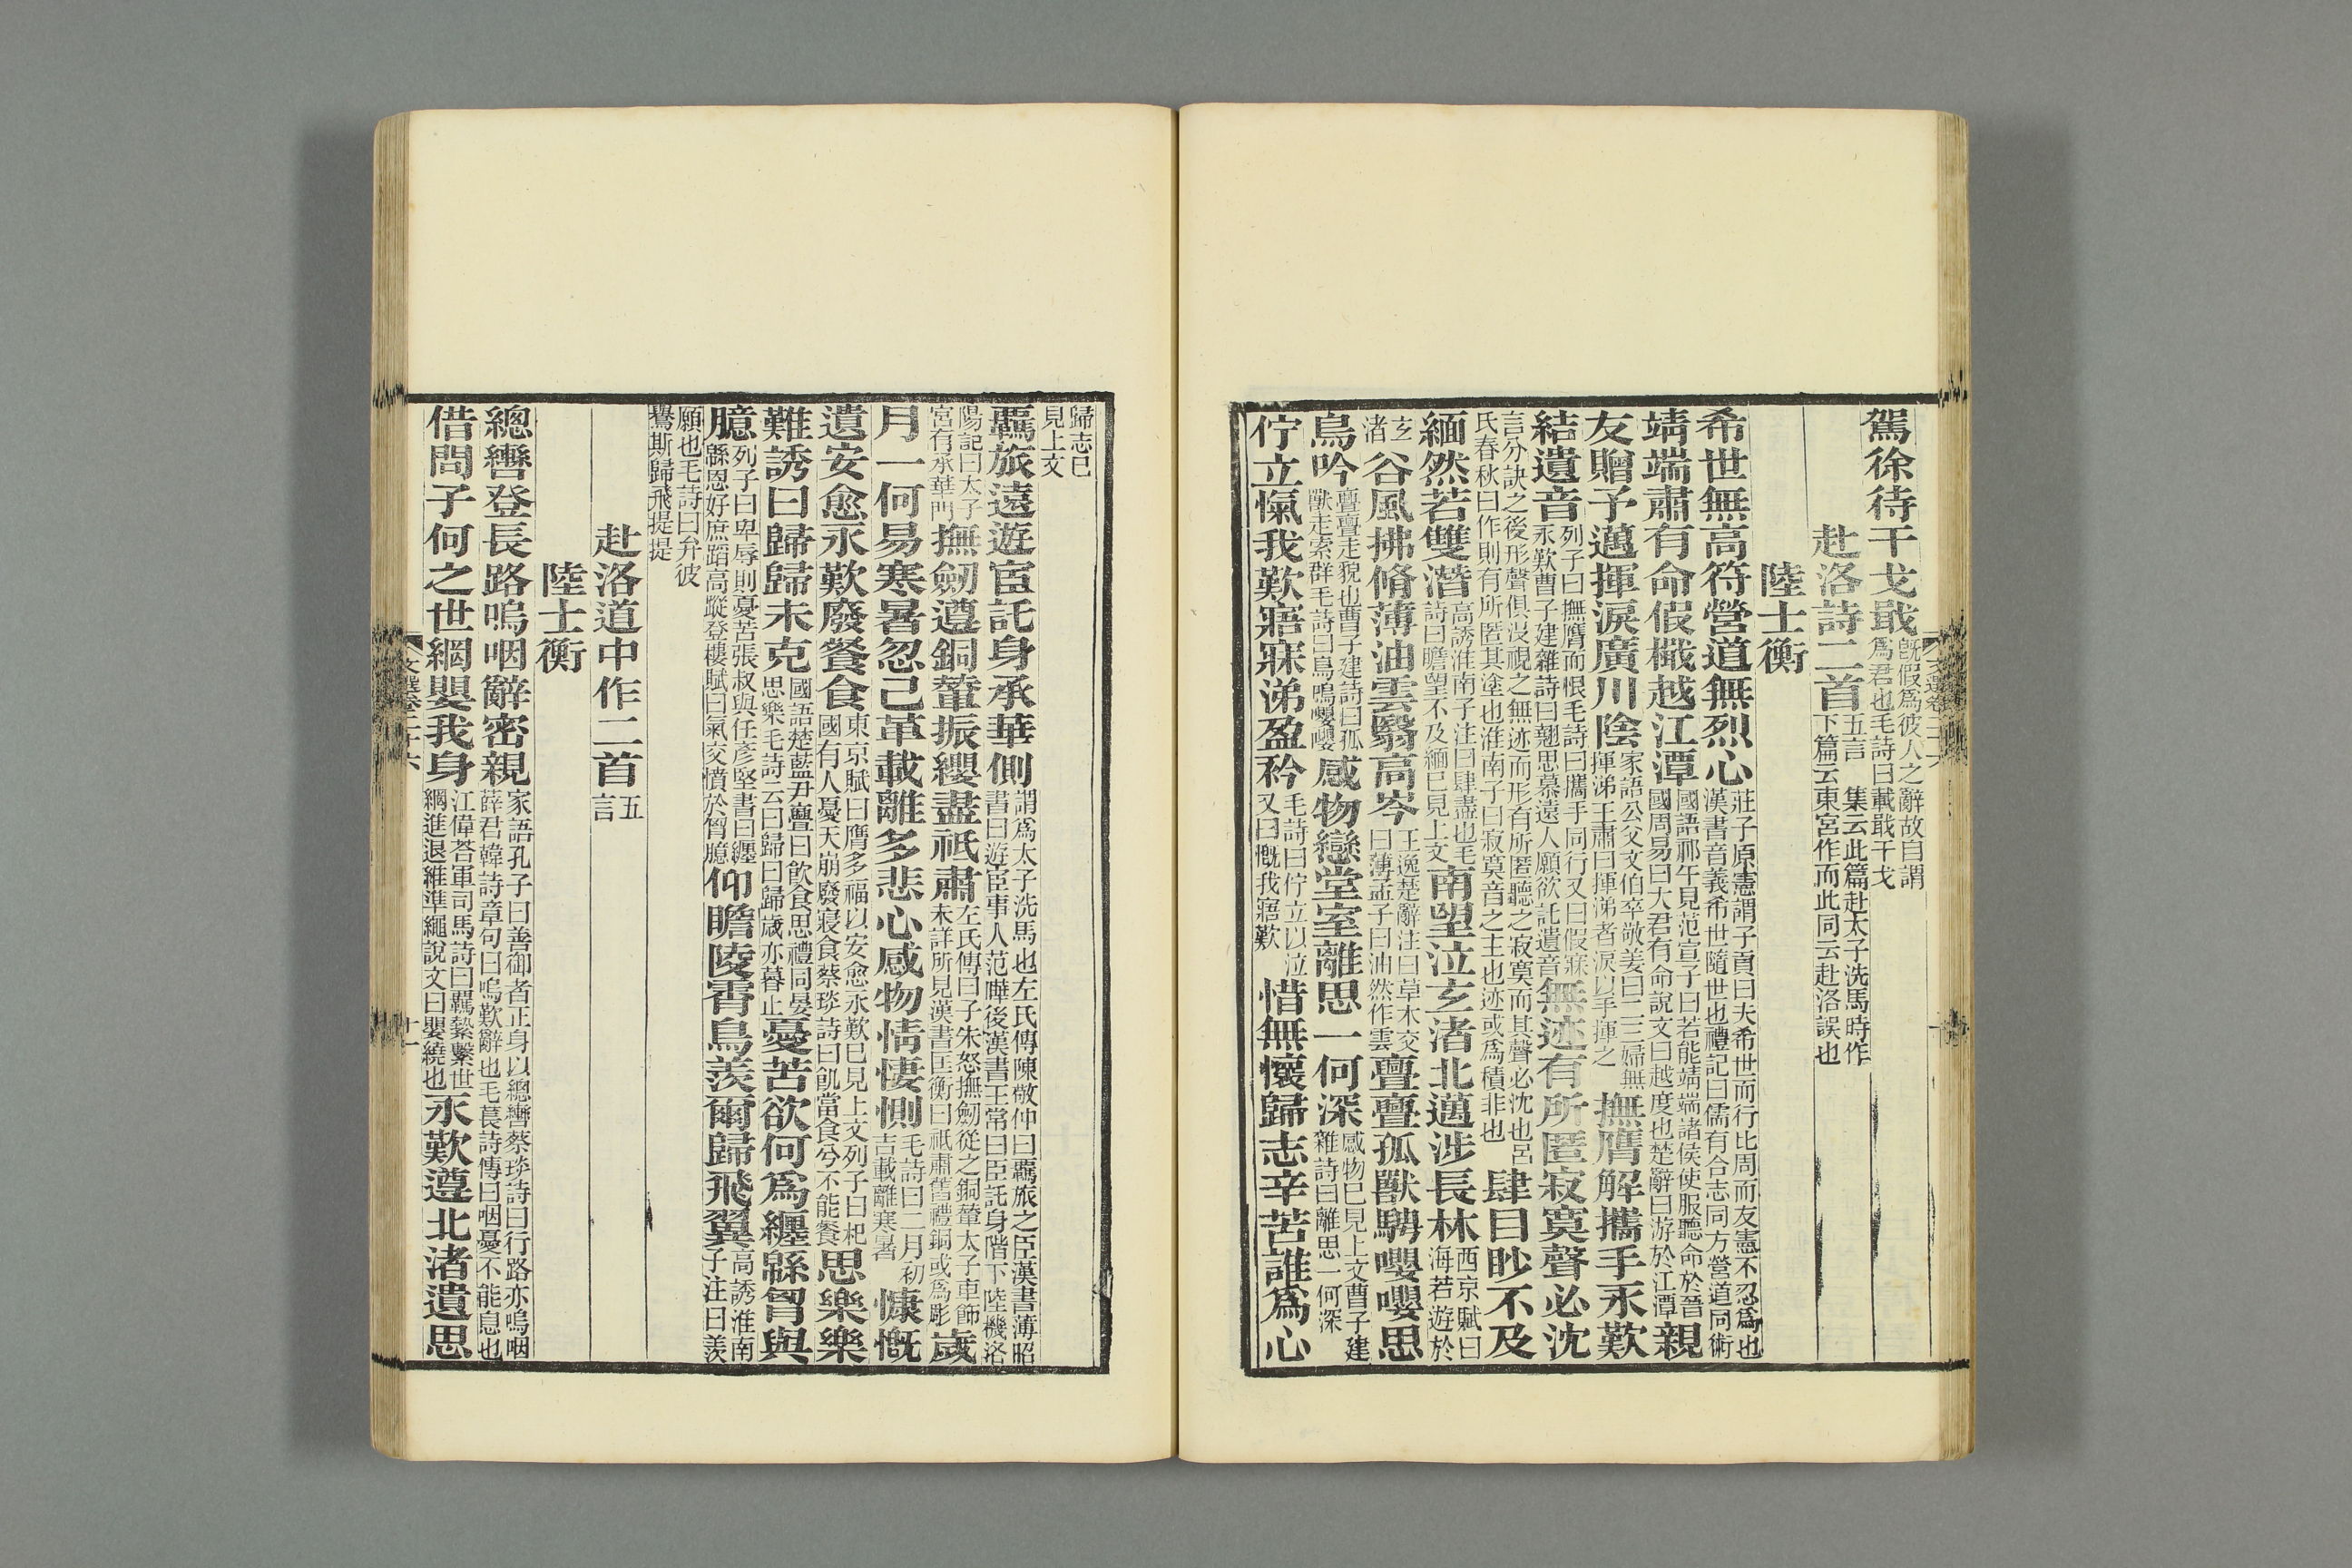 駕徐待干戈戢旣假爲彼人之辭故自謂爲君也毛詩曰載戢干戈
赴洛詩二首五言　集云此篇赴太子洗馬時作下篇云東宮作而此同云赴洛誤也
陸士衡
希世無高符營道無烈心莊子原憲謂子貢曰夫希世而行比周而友憲不忍爲也漢書音義希世隨世也禮記曰儒有合志同方營道同術
靖端肅有命假檝越江潭國語祁午見范宣子曰若能靖端諸侯使服聽命於晉國周易曰大君有命說文曰越度也楚辭曰游於江潭親
友贈予邁揮淚廣川陰家語公父文伯卒敬姜曰二三婦無揮涕王肅曰揮涕者淚以手揮之撫膺解攜手永歎
結遺音列子曰撫膺而恨毛詩曰攜手同行又曰假寐永歎曹子建雜詩曰翹思慕遠人願欲託遺音無迹有所匿寂寞聲必沈
言分訣之後形聲俱沒視之無迹而形有所匿聽之寂寞而其聲必沈也呂氏春秋曰作則有所匿其塗也淮南子曰寂莫音之主也迹或爲積非也肆目眇不及
緬然若雙潛高誘淮南子注曰肆盡也毛詩曰瞻望不及緬已見上文南望泣玄渚北邁涉長林西京賦曰海若遊於
玄渚谷風拂脩薄油雲翳高岑王逸楚辭注曰草木交曰薄孟子曰油然作雲亹亹孤獸騁嚶嚶思
鳥吟亹亹走貌也曹子建詩曰孤獸走索群毛詩曰鳥鳴嚶嚶感物戀堂室離思一何深感物已見上文曹子建雜詩曰離思一何深
佇立愾我歎寤寐涕盈衿毛詩曰佇立以泣又曰愾我寤歎惜無懷歸志辛苦誰爲心
歸志已見上文
羈旅遠遊宦託身承華側謂爲太子洗馬也左氏傳陳敬仲曰羈旅之臣漢書薄昭書曰遊宦事人范曄後漢書王常曰臣託身階下陸機洛
陽記曰太子宮有承華門撫劒遵銅輦振纓盡祇肅左氏傳曰子朱怒撫劒從之銅輦太子車飾未詳所見漢書匡衡曰祇肅舊禮銅或爲彫歲
月一何易寒暑忽已革載離多悲心感物情悽惻毛詩曰二月初吉載離寒暑慷慨
遺安愈永歎廢餐食東京賦曰膺多福以安愈永歎已見上文列子曰杞國有人憂天崩廢寢食蔡琰詩曰飢當食兮不能餐思樂樂
難誘曰歸歸未克國語楚藍尹亹曰飲食思禮同晏思樂毛詩云曰歸曰歸歲亦暮止憂苦欲何爲纏緜胷與
臆列子曰卑辱則憂苦張叔與任彥堅書曰纏緜恩好庶蹈高蹤登樓賦曰氣交憤於胷臆仰瞻陵霄鳥羨爾歸飛翼高誘淮南子注曰羨
願也毛詩曰弁彼鸒斯歸飛提提
赴洛道中作二首五言
陸士衡
總轡登長路嗚咽辭密親家語孔子曰善御者正身以總轡蔡琰詩曰行路亦嗚咽薛君韓詩章句曰嗚歎辭也毛萇詩傳曰咽憂不能息也
借問子何之世網嬰我身江偉荅軍司馬詩曰羈縶繫世網進退維準繩說文曰嬰繞也永歎遵北渚遺思
文選卷二十六
十一